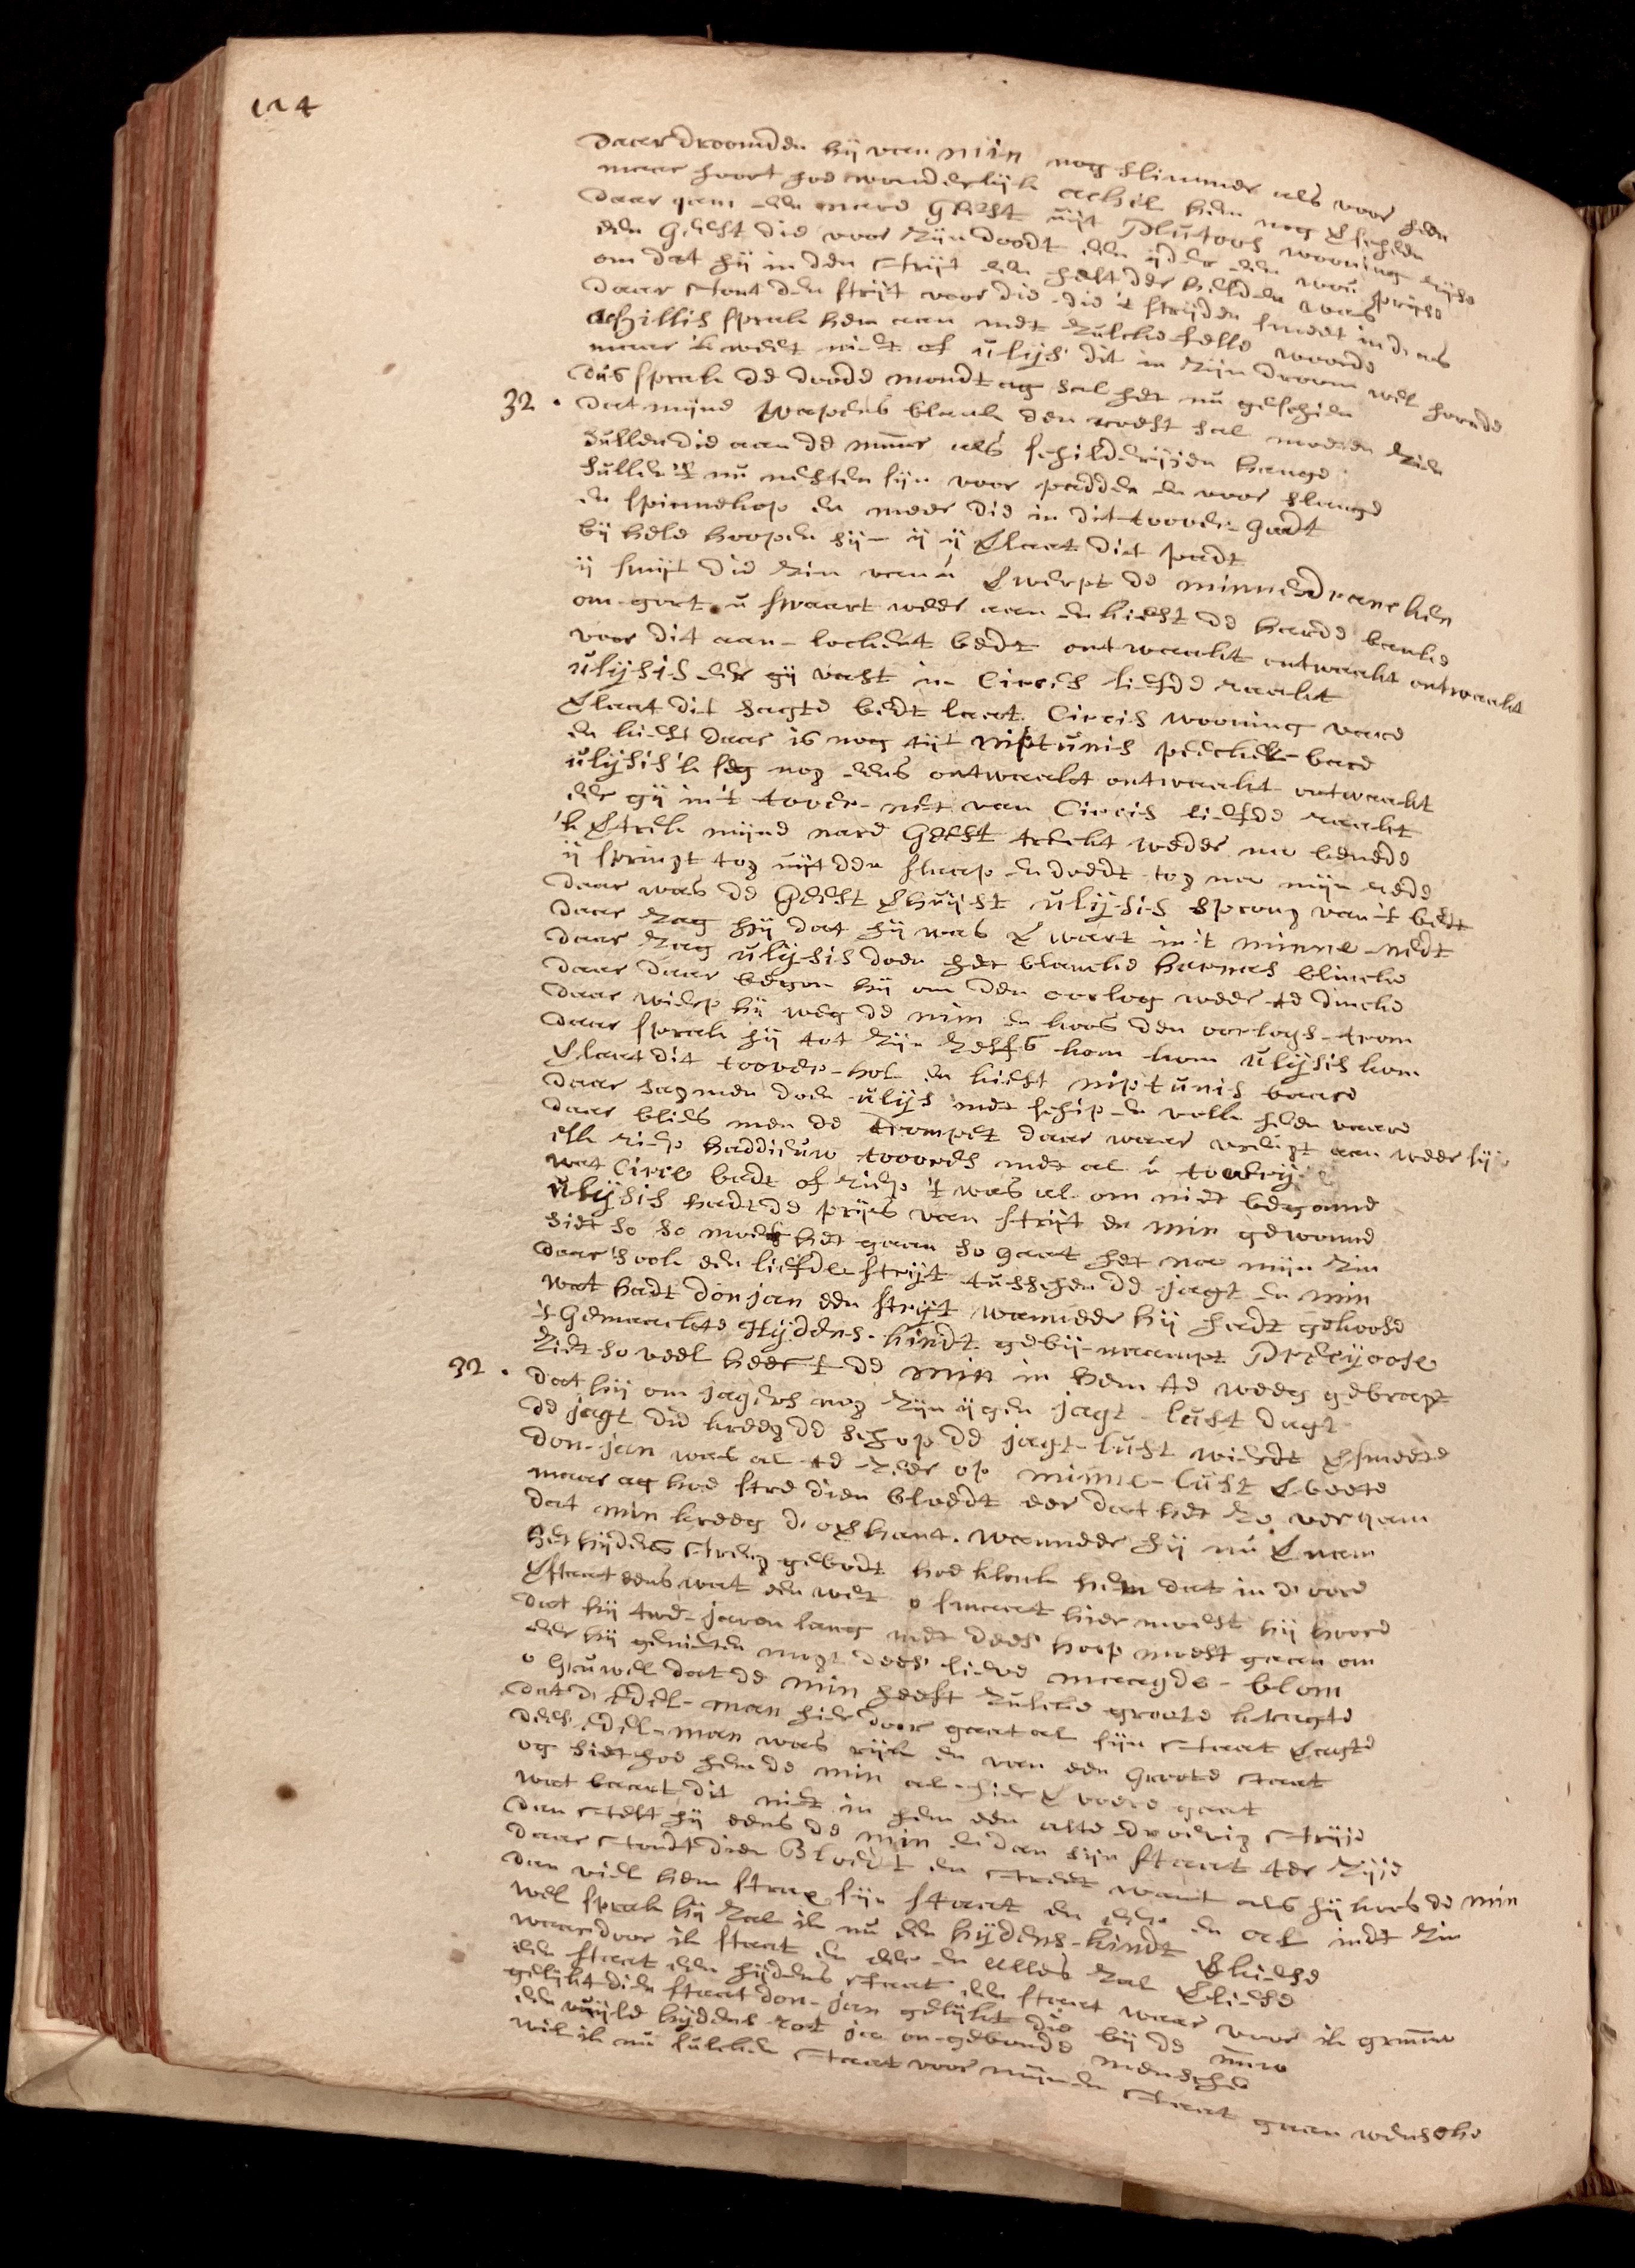 124
daar droomden hij van min nog slimmer als voor heen
maar hoort hoe wonderlijk achil hem nog &scheen
daar qam een nare Geest uijt Plutoos wooning rijse
een Geest die voor zijn doodt een ijder een wou prijse
om dat hij in den strijt een helt der helden was
daar stont den strijt voor die die 't strijden smeet in d' as
achillis sprak hem aan met zulcke felle woorde
maar 'k weet niet of ulijs' dit in zijn droom wel hoorde
dus sprak de doode mondt ag sal het nu geschien
32. dat mijne wapens blank den roest sal moeten zien
sullen die aan de muur als schilderijen hange
sullen 't nu nesten sijn voor padden en voor slange
en spinnekop en meer die in dit toover-gadt
bij hele hoopen sijn ij ij &laat dit padt
ij smijt die min van u &werpt de minnedrancken
om-gort u swaart weer aan en kiest de harde bancke
voor dit aan-lockent bedt ontwaakt ontwaakt ontwaakt
ulijsis eer gij vast in Circis liefde raakt
&laat dit sagte bedt laat Circis wooning vare
en kiest daar is nog tijt niptunis peeckel-bare
ulijsis 'k seg nog eens ontwaakt ontwaakt ontwaakt
eer gij in 't toover-net van Circis liefde raakt
'k &trek mijne nare Geest trekt weder na beneede
ij springt tog uijt den slaap en doedt tog na mijn reede
daar was de Geest &huijst ulijsis sprong van 't bedt
daar zag hij dat hij was &wart in 't minne-nedt
daar zag ulijsis doen het blancke harnas blincke
daar daar begon hij om den oorlog weer te dincke
daar wierp hij weg de min en koos den oorlogs-trom
daar sprak hij tot zijn zelfs kom kom ulijsis kom
&laat dit toover-hol en kiest niptunis baare
daar sag men doen ulijs met schip en volk heen vaare
daar blies men de trompet daar waar
elk riep haddieuw toovres met al u toovrij
wat Circe badt of riep 't was al om niet begonne
ulijsis hadt de prijs van strijt en min gewonne
siet so so moet het gaan so gaat het na mijn zin
daar 's ook een liefde strijt tusschen de jagt en min
wat hadt don jan een strijt wanneer hij hadt gekoose
't Gemaakte Hijdens-kindt gebij-naampt Pretijoose
ziet so veel heeft de min in hem te weeg gebragt
32. dat hij om jagers nog zijn ijgen jagt-lust dagt
de jagt die kreeg de schop de jagt-lust wierdt &smeete
don-jan was al te zeer op minne-lust &beete
maar ag hoe stre dien bloedt eer dat het zo ver qam
dat min kreeg d' o&hant. wanneer hij nu &nam
het hijdens streng gebodt hoe klonk hem dat in d' oore
&staat eens wat een wet o smaat hier moest hij hoore
dat hij twe-jaren lang met dees hoop moest gaan om
eer hij genieten mogt dees lieve maagde-blom
o Gruwel dat de min heeft zulcke groote kragte
dat d' Edel-man hier door gaat al sijn staat &agte
dees edel-man was rijk en van een Groote staat
og siet hoe hem de min al-hier &voere gaat
wat baart dit niet in hem een alte droevig strije
dan stelt hij eens de min en dan sijn staat ter zije
daar stondt dien Bloedt en street want als hij koos de min
dan viel hem strax sijn staat en eer en al indt zin
wel sprak hij zal ik nu een hijdens-kindt &kiese
waardoor ik staat en eer en alles zal &liese
een staat een hijdens staat een staat waar voor ik gruuw
gelijkt dien staat don-jan gelijkt die bij de uuw
een vuijle hijdens-rot ja on-gebonde mensche
wil ik nu sulcken staat voor mijnen staat gaan wensche